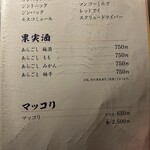 ジントニック
ジンバック
モスコミュール
マンゴーミルク
レッドアイ
スクリュードライバー
果実酒
あらごし 梅酒 750円
あらごし もも 750円
あらごし みかん 750円
あらごし 柚子 750円
マッコリ
マッコリ
650円
2,500円